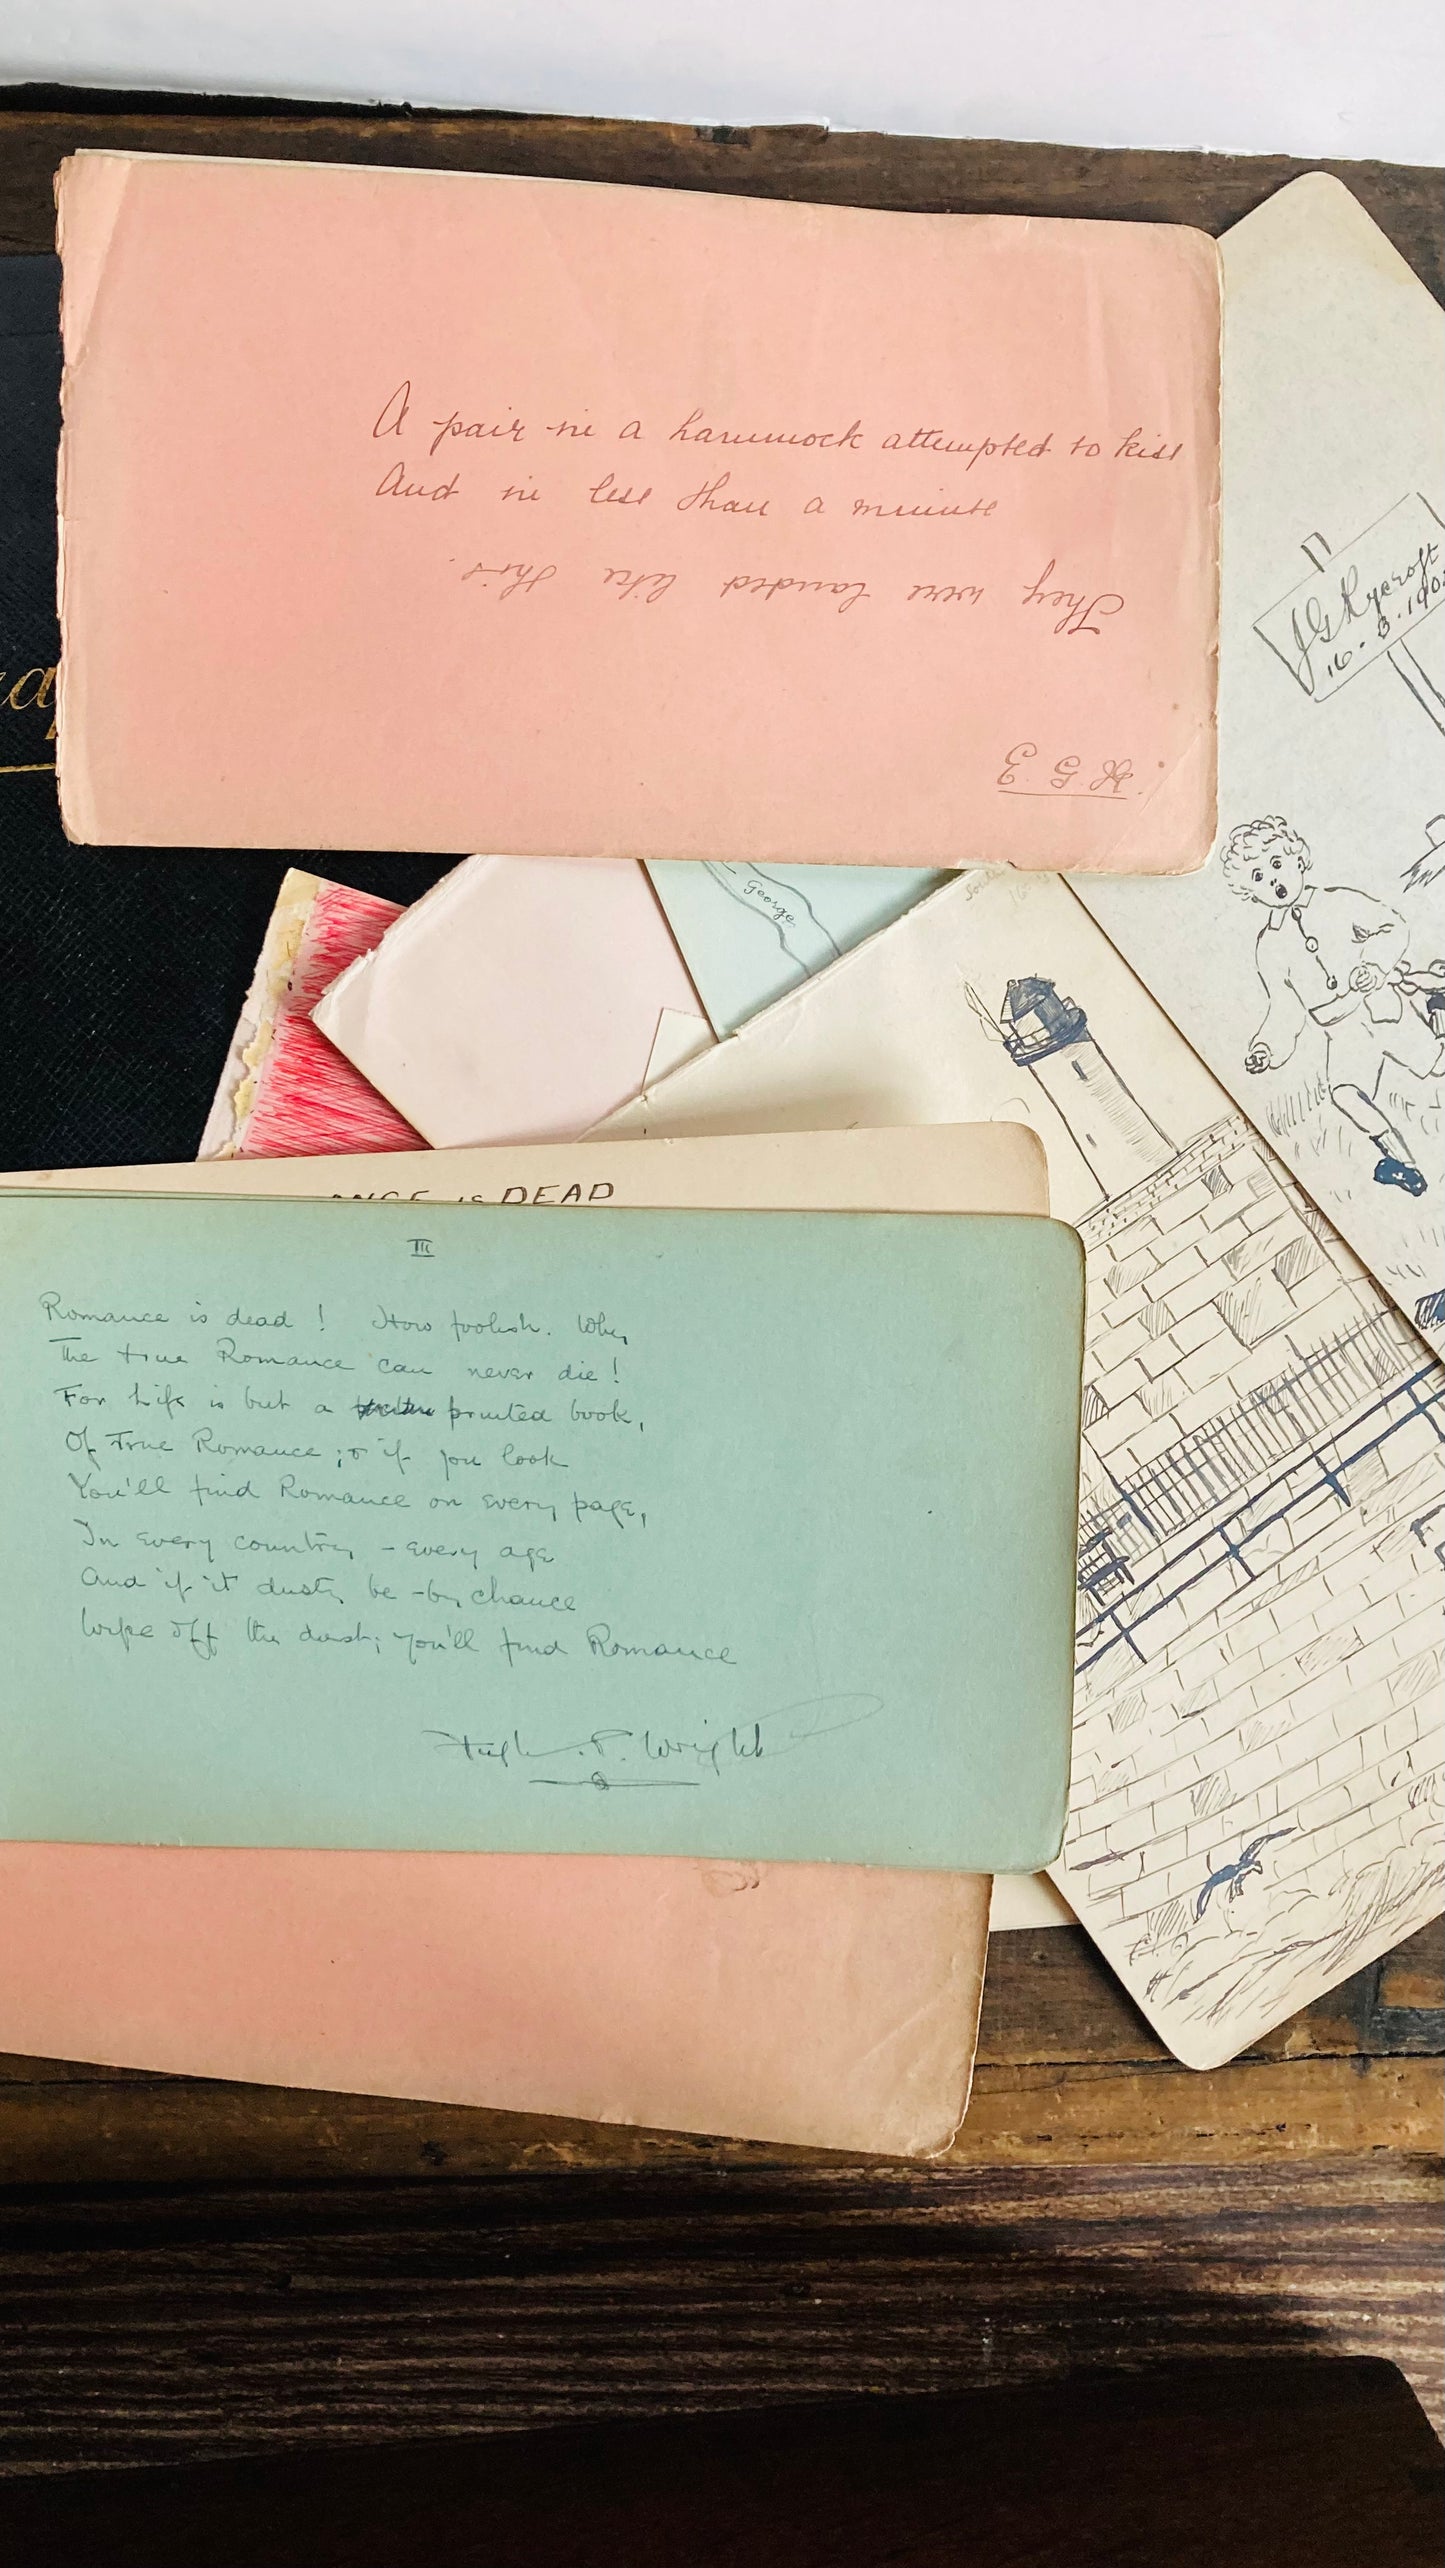 A pair in a hammock attempted to kiss
And in less than a minute
They were landed like this.
J G Rycroft
16.3.190
George
IS DEAD
III
Romance is dead! How foolish. Why,
The true Romance can never die!
For Life is but a printed book,
Of True Romance; & if you look
You'll find Romance on every page,
In every country – every age
And if it dusty be – by chance
Wipe off the dust; you'll find Romance
Hugh. P. Wright